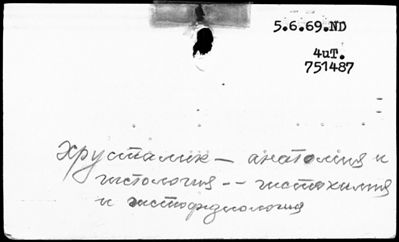 5.6.69.ND
4иТ.
751487
Хрусталик — анатомия и
гистология -- гистохимия
и гистофизиология